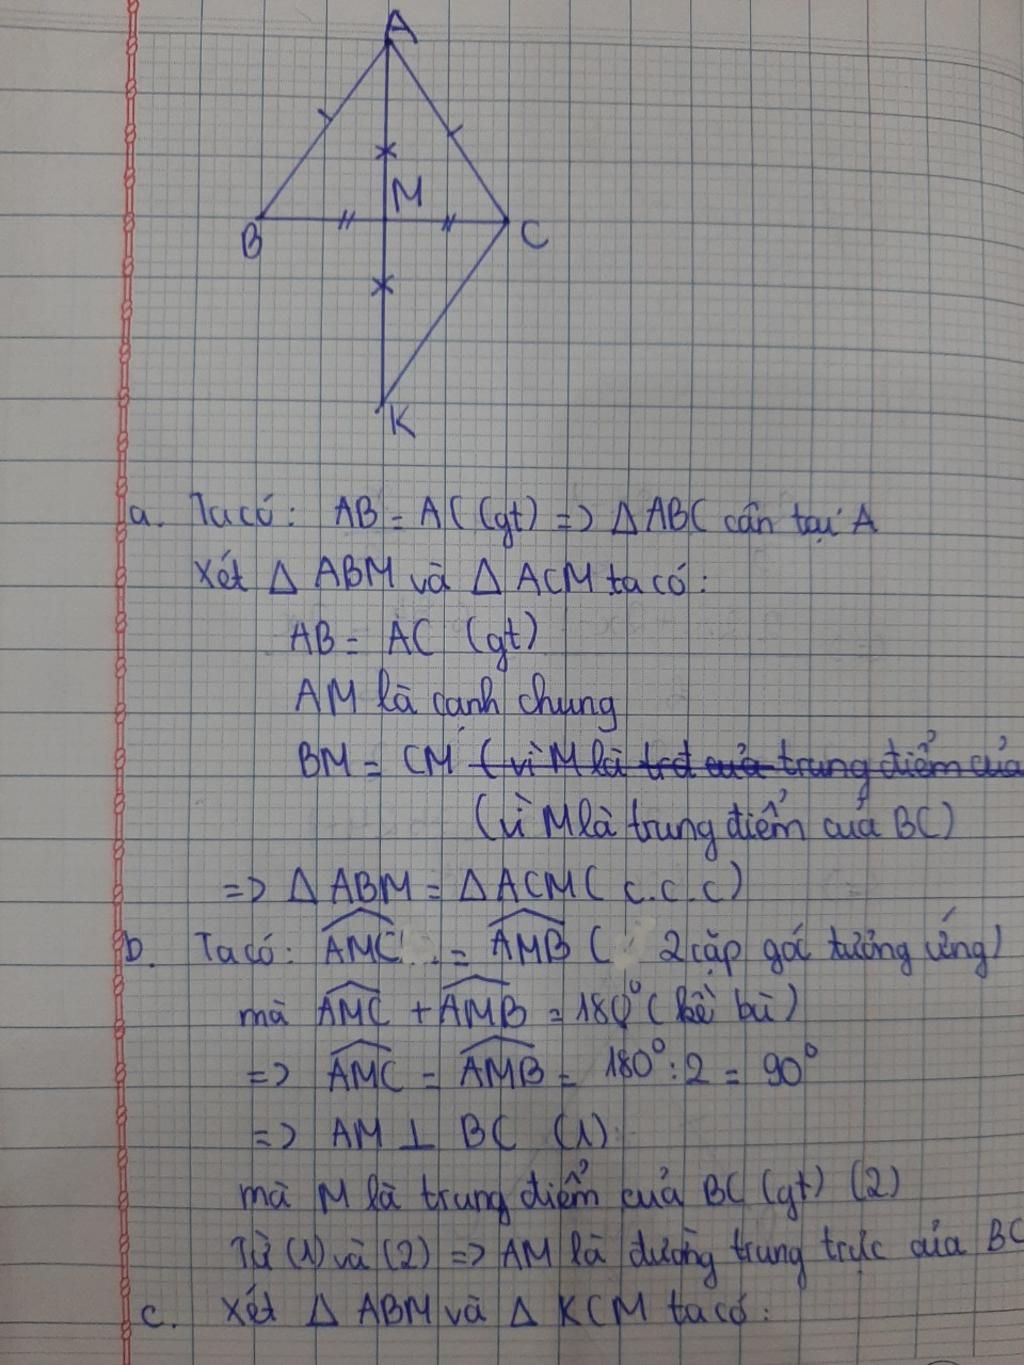 A
M
B
C
K
a. Ta có: AB = AC (gt) => Δ ABC cân tại A
Xét Δ ABM và Δ ACM ta có:
AB = AC (gt)
AM là cạnh chung
BM = CM (vì M là trđ của trung điểm của
(vì M là trung điểm của BC)
=> Δ ABM = Δ ACM (c.c.c)
b. Ta có: AMC = AMB ( 2 cặp góc tưởng ứng)
mà AMC + AMB = 180° (kề bù)
=> AMC = AMB = 180° : 2 = 90°
=> AM ⊥ BC (1)
mà M là trung điểm của BC (gt) (2)
Từ (1) và (2) => AM là đường trung trực của BC
c. Xét Δ ABM và Δ KCM ta có: